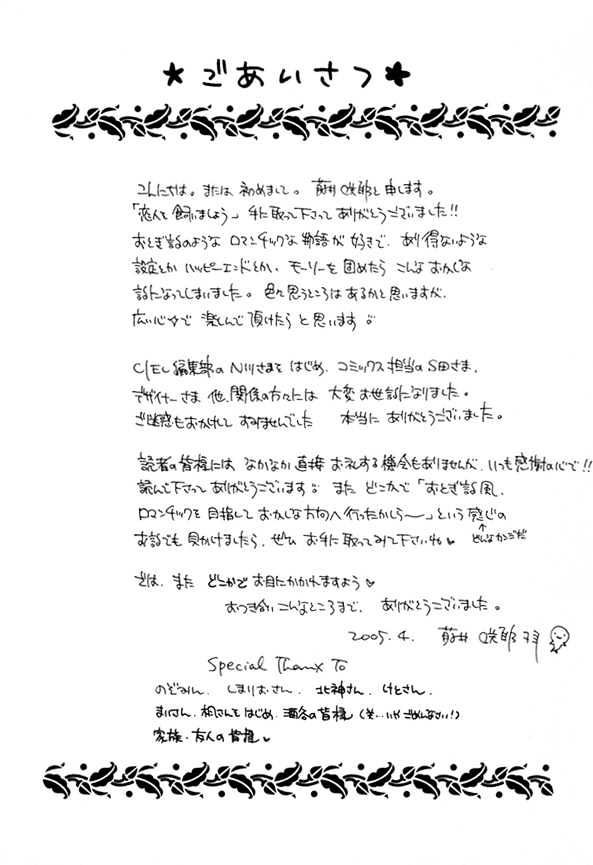 ★ごあいさつ✱
こんにちは。または初めまして。藤井咲耶と申します。
「恋人を飼いましょう」手に取って下さってありがとうございました!!
おとぎ話のようなロマンチックな物語が好きで、あり得ないような
設定とかハッピーエンドとか、モーソーを固めたらこんなおかしな
話になってしまいました。色々思うところはあるかと思いますが、
広い心で楽しんで頂けたらと思います。
CIEL編集部のN川さまをはじめ、コミックス担当のS田さま、
デザイナーさま他、関係の方々には大変お世話になりました。
ご迷惑もおかけしてすみませんでした 本当にありがとうございました。
読者の皆様にはなかなか直接お礼する機会もありませんが、いつも感謝の心で!!
読んで下さってありがとうございます。またどこかで「おとぎ話風、
ロマンチックを目指しておかしな方向へ行ったかしら〜」という感じの
お話でも見かけましたら、ぜひお手に取ってみて下さいね♥
↑どんなカンジだ
では、またどこかでお目にかかれますよう♥
おつき合いこんなところまで、ありがとうございました。
2005.4. 藤井咲耶
Special Thanx To
のぞみん、しまりおさん、北神さん、けとさん、
まいさん、相さんをはじめ、酒冬の皆様(そ…いやごめんなさい!)
家族・友人の皆様♥